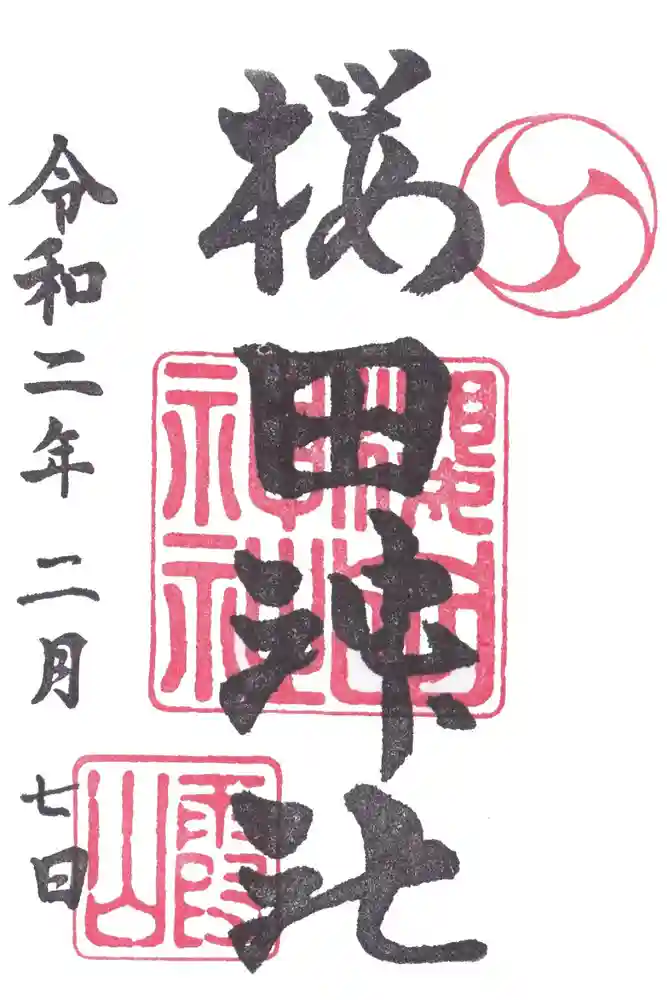 桜田神社
令和二年 二月 七日
櫻田神社
霞山